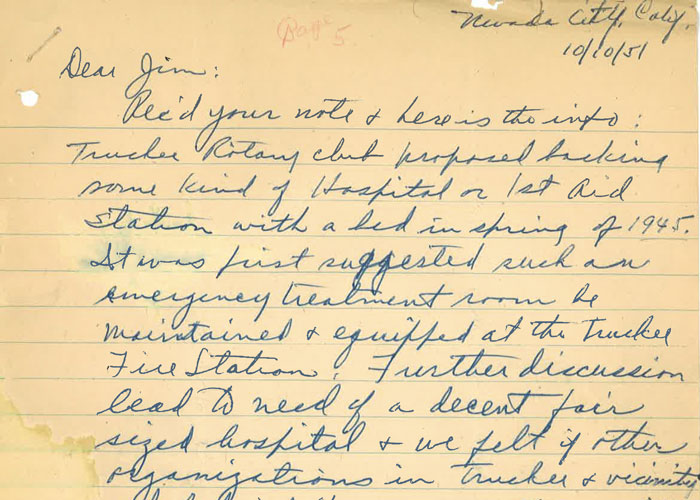 Page 5.
Nevada City, Calif.
10/10/51
Dear Jim:
Rec'd your note & here is the info:
Truckee Rotary club proposed backing
some kind of Hospital or 1st Aid
Station with a bed in spring of 1945.
It was first suggested such an
emergency treatment room be
maintained & equipped at the Truckee
Fire Station. Further discussion
lead to need of a decent fair
sized hospital & we felt if other
organizations in Truckee & vicinity